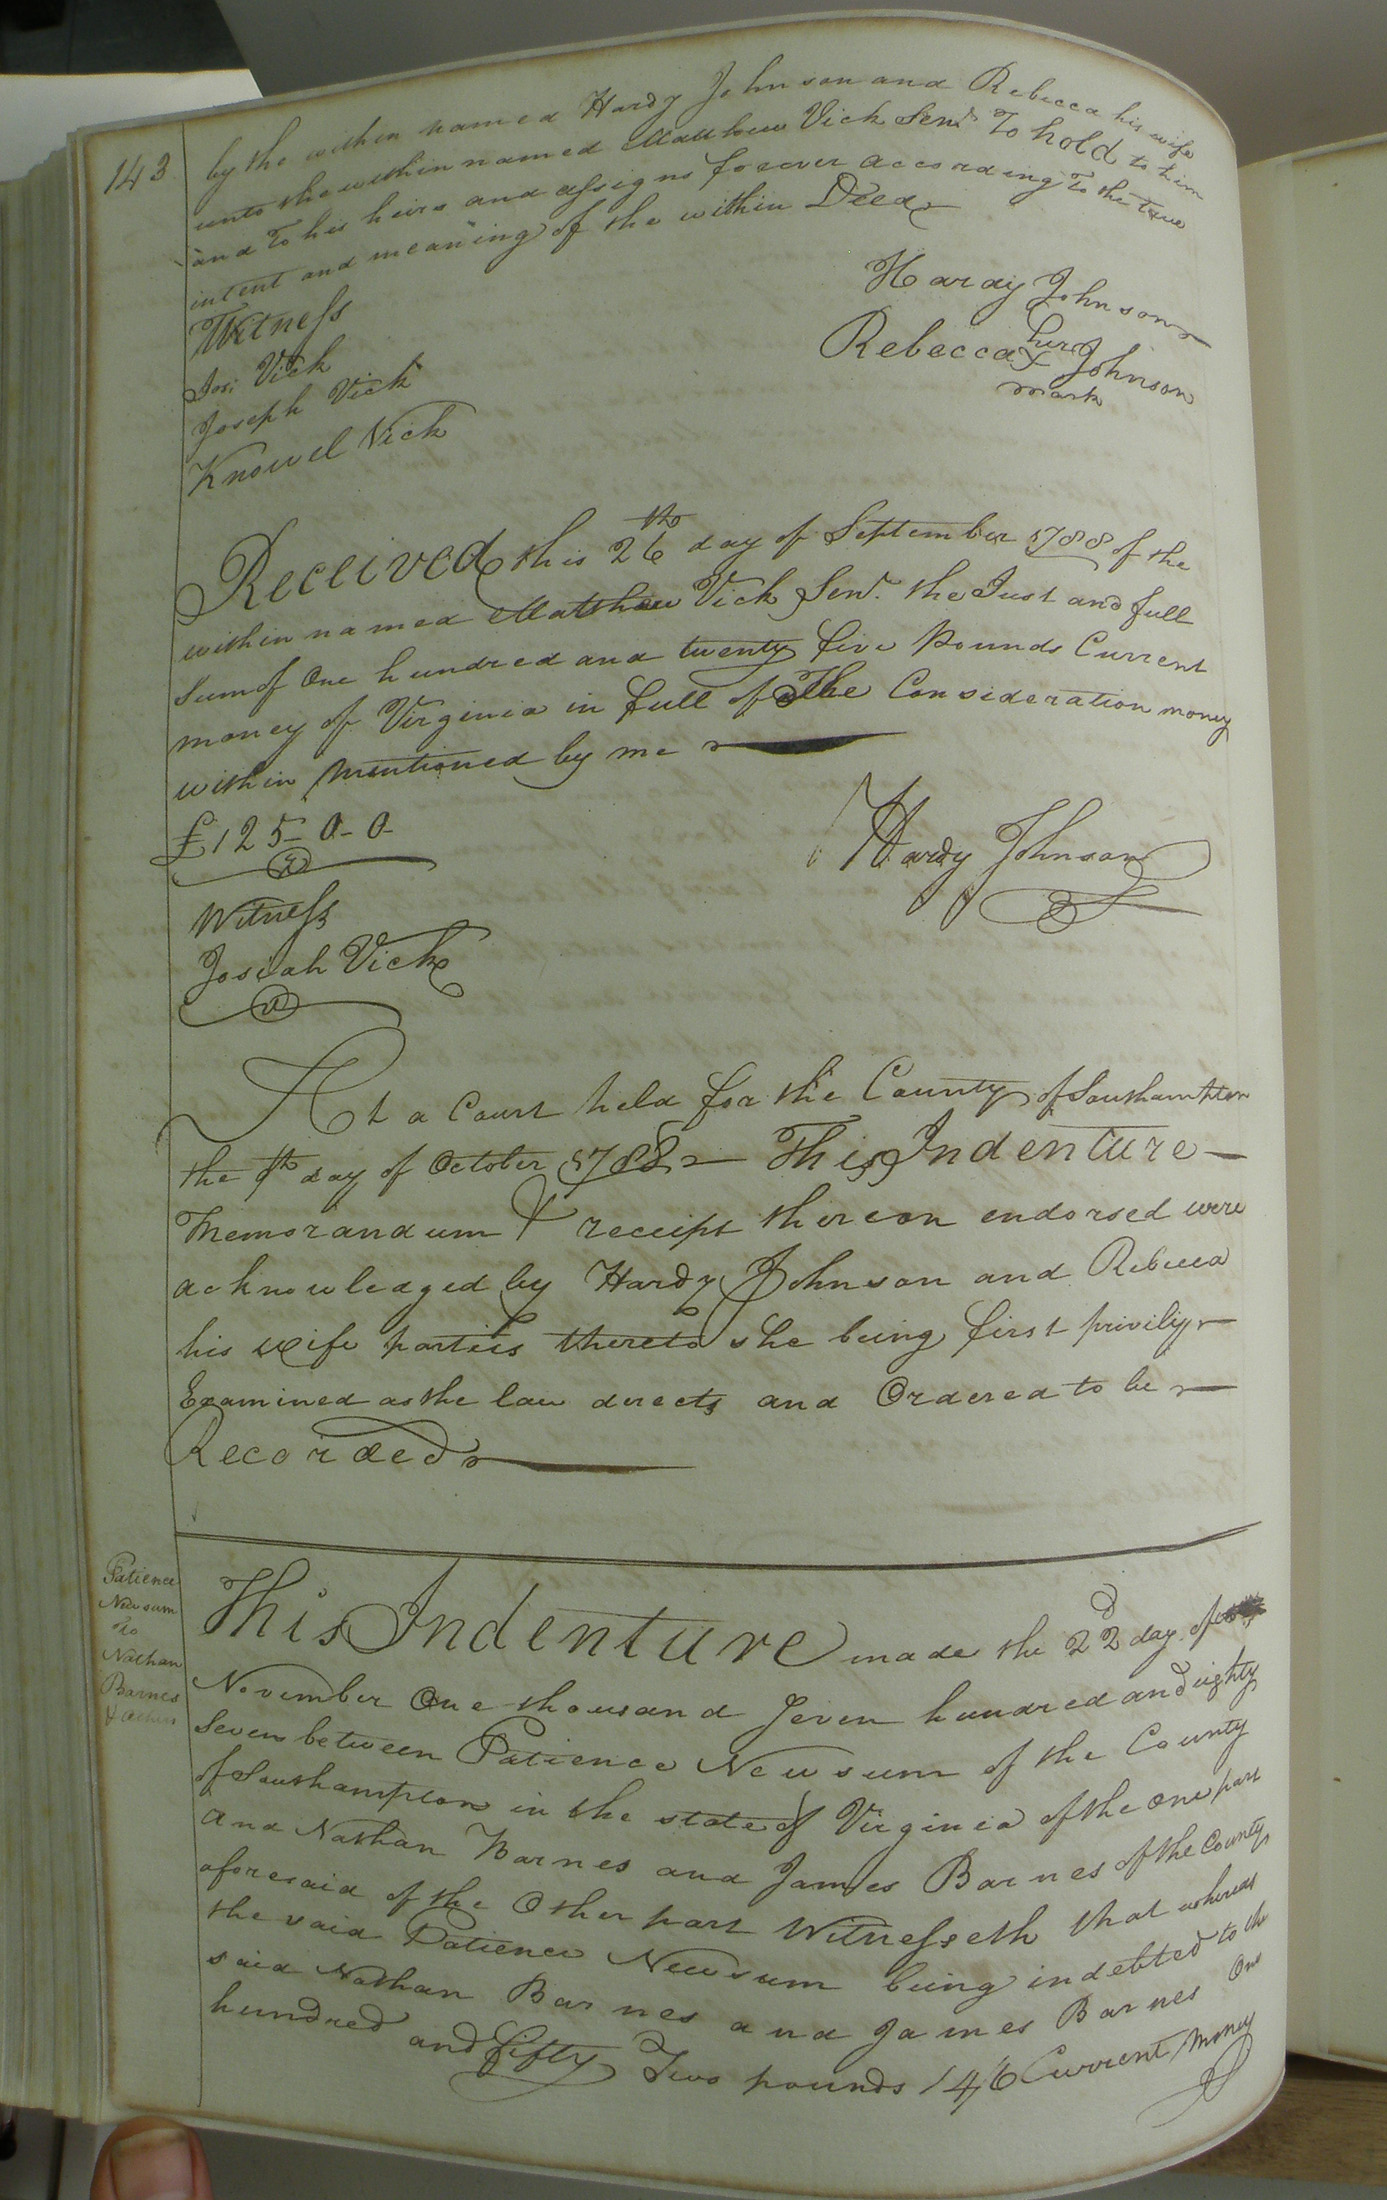 143
by the within named Hardy Johnson and Rebecca his wife
unto the within named Matthew Vick Senr. To hold to him
and To his heirs and assigns forever according To the true
intent and meaning of the within Deed
Hardy Johnson
her
Rebecca X Johnson
mark
Witness
Jos: Vick
Joseph Vick
Knowel Vick
Received this 26th day of September 1788 of the
within named Matthew Vick Senr. the Just and full
Sum of One hundred and twenty five Pounds Current
money of Virginia in full of The Consideration money
within mentioned by me
£125-0-0-
Hardy Johnson
Witness
Josiah Vick
At a Court held for the County of Southampton
the 9th day of October 1788 This Indenture
Memorandum & receipt thereon endorsed were
acknowledged by Hardy Johnson and Rebecca
his wife parties thereto she being first privily
Examined as the law directs and Ordered to be
Recorded
Patience
Newsum
To
Nathan
Barnes
& others
This Indenture made the 22d day of
November One thousand Seven hundred and eighty
Seven between Patience Newsum of the County
of Southampton in the state of Virginia of the one part
and Nathan Barnes and James Barnes of the County
aforesaid of the Other part Witnesseth that whereas
the said Patience Newsum being indebted to the
said Nathan Barnes and James Barnes One
hundred and fifty Two pounds 14/6 Current Money